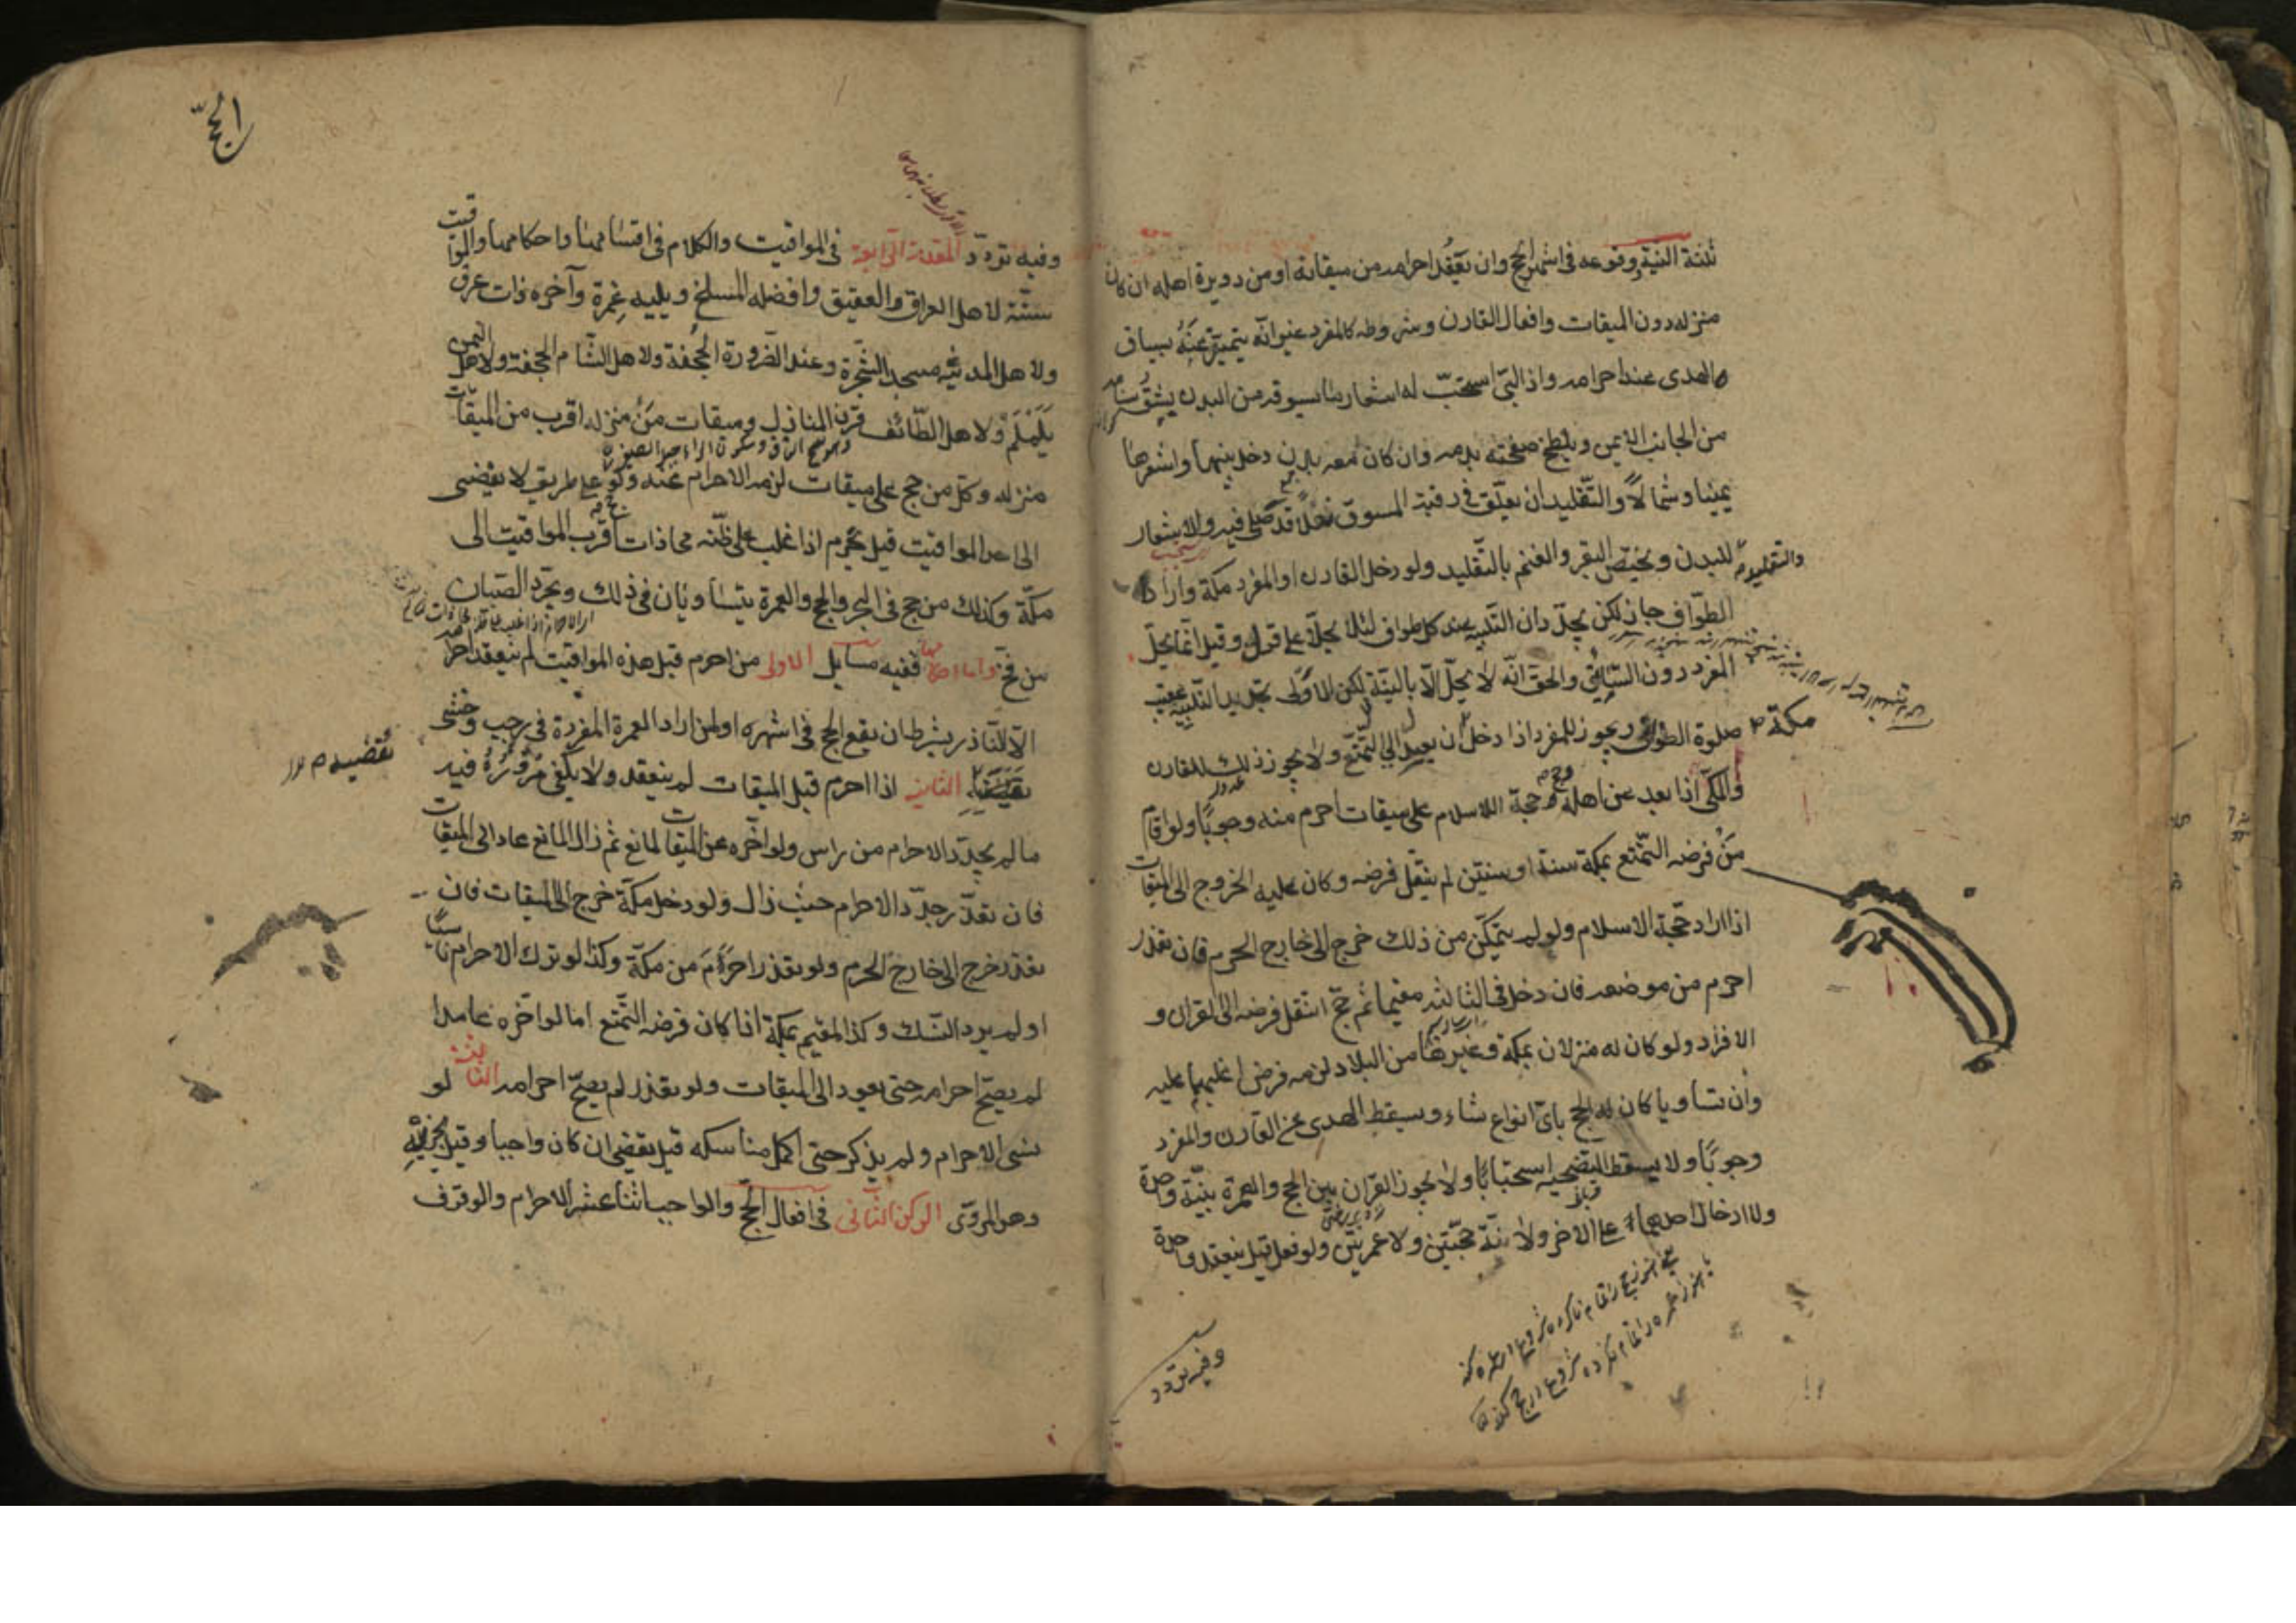 ثلثة النية ووقوعه فى اشهر الحج وان يعقد احرامه من ميقاته او من دويرة اهله ان كان
منزله دون الميقات وافعال القارن وشروطه كالمفرد غير انه يتميز عنه بسياق
الهدى عند احرامه واذا لبّى استحبّ له اشعار ما يسوقه من البدن يشق سنامه
من الجانب الايمن ويلطخ صفحته بدمه وان كان معه بدن دخل بينها واشعرها
يمينا وشمالاً والتقليد ان يعلّق فى رقبة المسوق نعلاً قد صلى فيه والاشعار
والتقليد للبدن ويختص البقر والغنم بالتّقليد ولو دخل القارن او المفرد مكة واراد
الطوّاف جاز لكن يجدّدان التّلبيه عند كل طواف لئلا يحلّا على قول وقيل انما يحلّ
المفرد دون السّايق والحق انّه لا يحلّ الّا بالنيّة لكن الاولى تجديد التّلبيه عقيب
صلوة الطواف ويجوز للمفرد اذا دخل مكة ان يعدل الى التّمتّع ولا يجوز ذلك للقارن
والمكّى اذا بعد عن اهله وحج حجة الاسلام على ميقات احرم منه وجوبًا ولو اقام
مَنْ فرضه التّمتّع بمكة سنة او سنتين لم ينتقل فرضه وكان عليه الخروج الى الميقات
اذا اراد حجّة الاسلام ولو لم يتمكّن من ذلك خرج الى خارج الحرم فان تعذر
احرم من موضعه فان دخل فى الثالثه مقيما ثم حجّ انتقل فرضه الى القران و
الافراد ولو كان له منزلان بمكة وغيرها من البلاد لزمه فرض اغلبهما عليه
وان تساويا كان له الحج باىّ انواع شاء ويسقط الهدى عن القارن والمفرد
وجوبًا ولا يسقط التضحيه استحبابًا ولا يجوز القران بين الحج والعمرة بنيّة واحدة
ولا ادخال احدهما على الاخر ولا نيّة حجّتين ولا عمرتين ولو فعل قيل ينعقد واحدة
وفيه تردد
الحجّ
وفيه تردّد المقدمة الرّابعة فى المواقيت والكلام فى اقسامها واحكامها والمواقيت
ستّة لاهل العراق العقيق وافضله المسلخ ويليه غمرة وآخره ذات عرق
ولاهل المدينه مسجد الشّجرة وعند الضّرورة الجُحفة ولاهل الشّام الجحفة ولاهل اليمن
يَلَمْلَمْ ولاهل الطّائف قرن المنازل وميقات مَنْ منزله اقرب من الميقات
منزله وكل من حج على ميقات لزمه الاحرام منه ولو حج على طريق لا يفضى
الى احد المواقيت قيل يحرم اذا غلب على ظنّه محاذات اقرب المواقيت الى
مكّة وكذلك من حج فى البحر والحج والعمرة يتساويان فى ذلك ويجرّد الصّبيان
من فخّ واما احكامها ففيه مسايل الاولى من احرم قبل هذه المواقيت لم ينعقد احرامه
الّا لنّاذر بشرط ان يقع الحج فى اشهره او لمن اراد العمرة المفردة فى رجب وخشى
تقضيه الثانية اذا احرم قبل الميقات لم ينعقد ولا يكفى مروره فيه
ما لم يجدّد الاحرام من راس ولو اخّره عن الميقات لمانع ثم زال المانع عاد الى الميقات
فان تعذّر جدّد الاحرام حيث زال ولو دخل مكّة خرج الى الميقات فان
تعذر خرج الى خارج الحرم ولو تعذر احرم من مكّة وكذا لو ترك الاحرام ناسيًا
او لم يرد النّسك وكذا المقيم بمكة اذا كان فرضه التّمتع اما لو اخّره عامدا
لم يصحّ احرامه حتى يعود الى الميقات ولو تعذر لم يصحّ احرامه الثالثة لو
نسى الاحرام ولم يذكر حتى اكمل مناسكه قيل يقضى ان كان واجبا وقيل يجزيه
وهو المروىّ الركن الثّانى فى افعال الحجّ والواجبات اثنا عشر الاحرام والوقوف